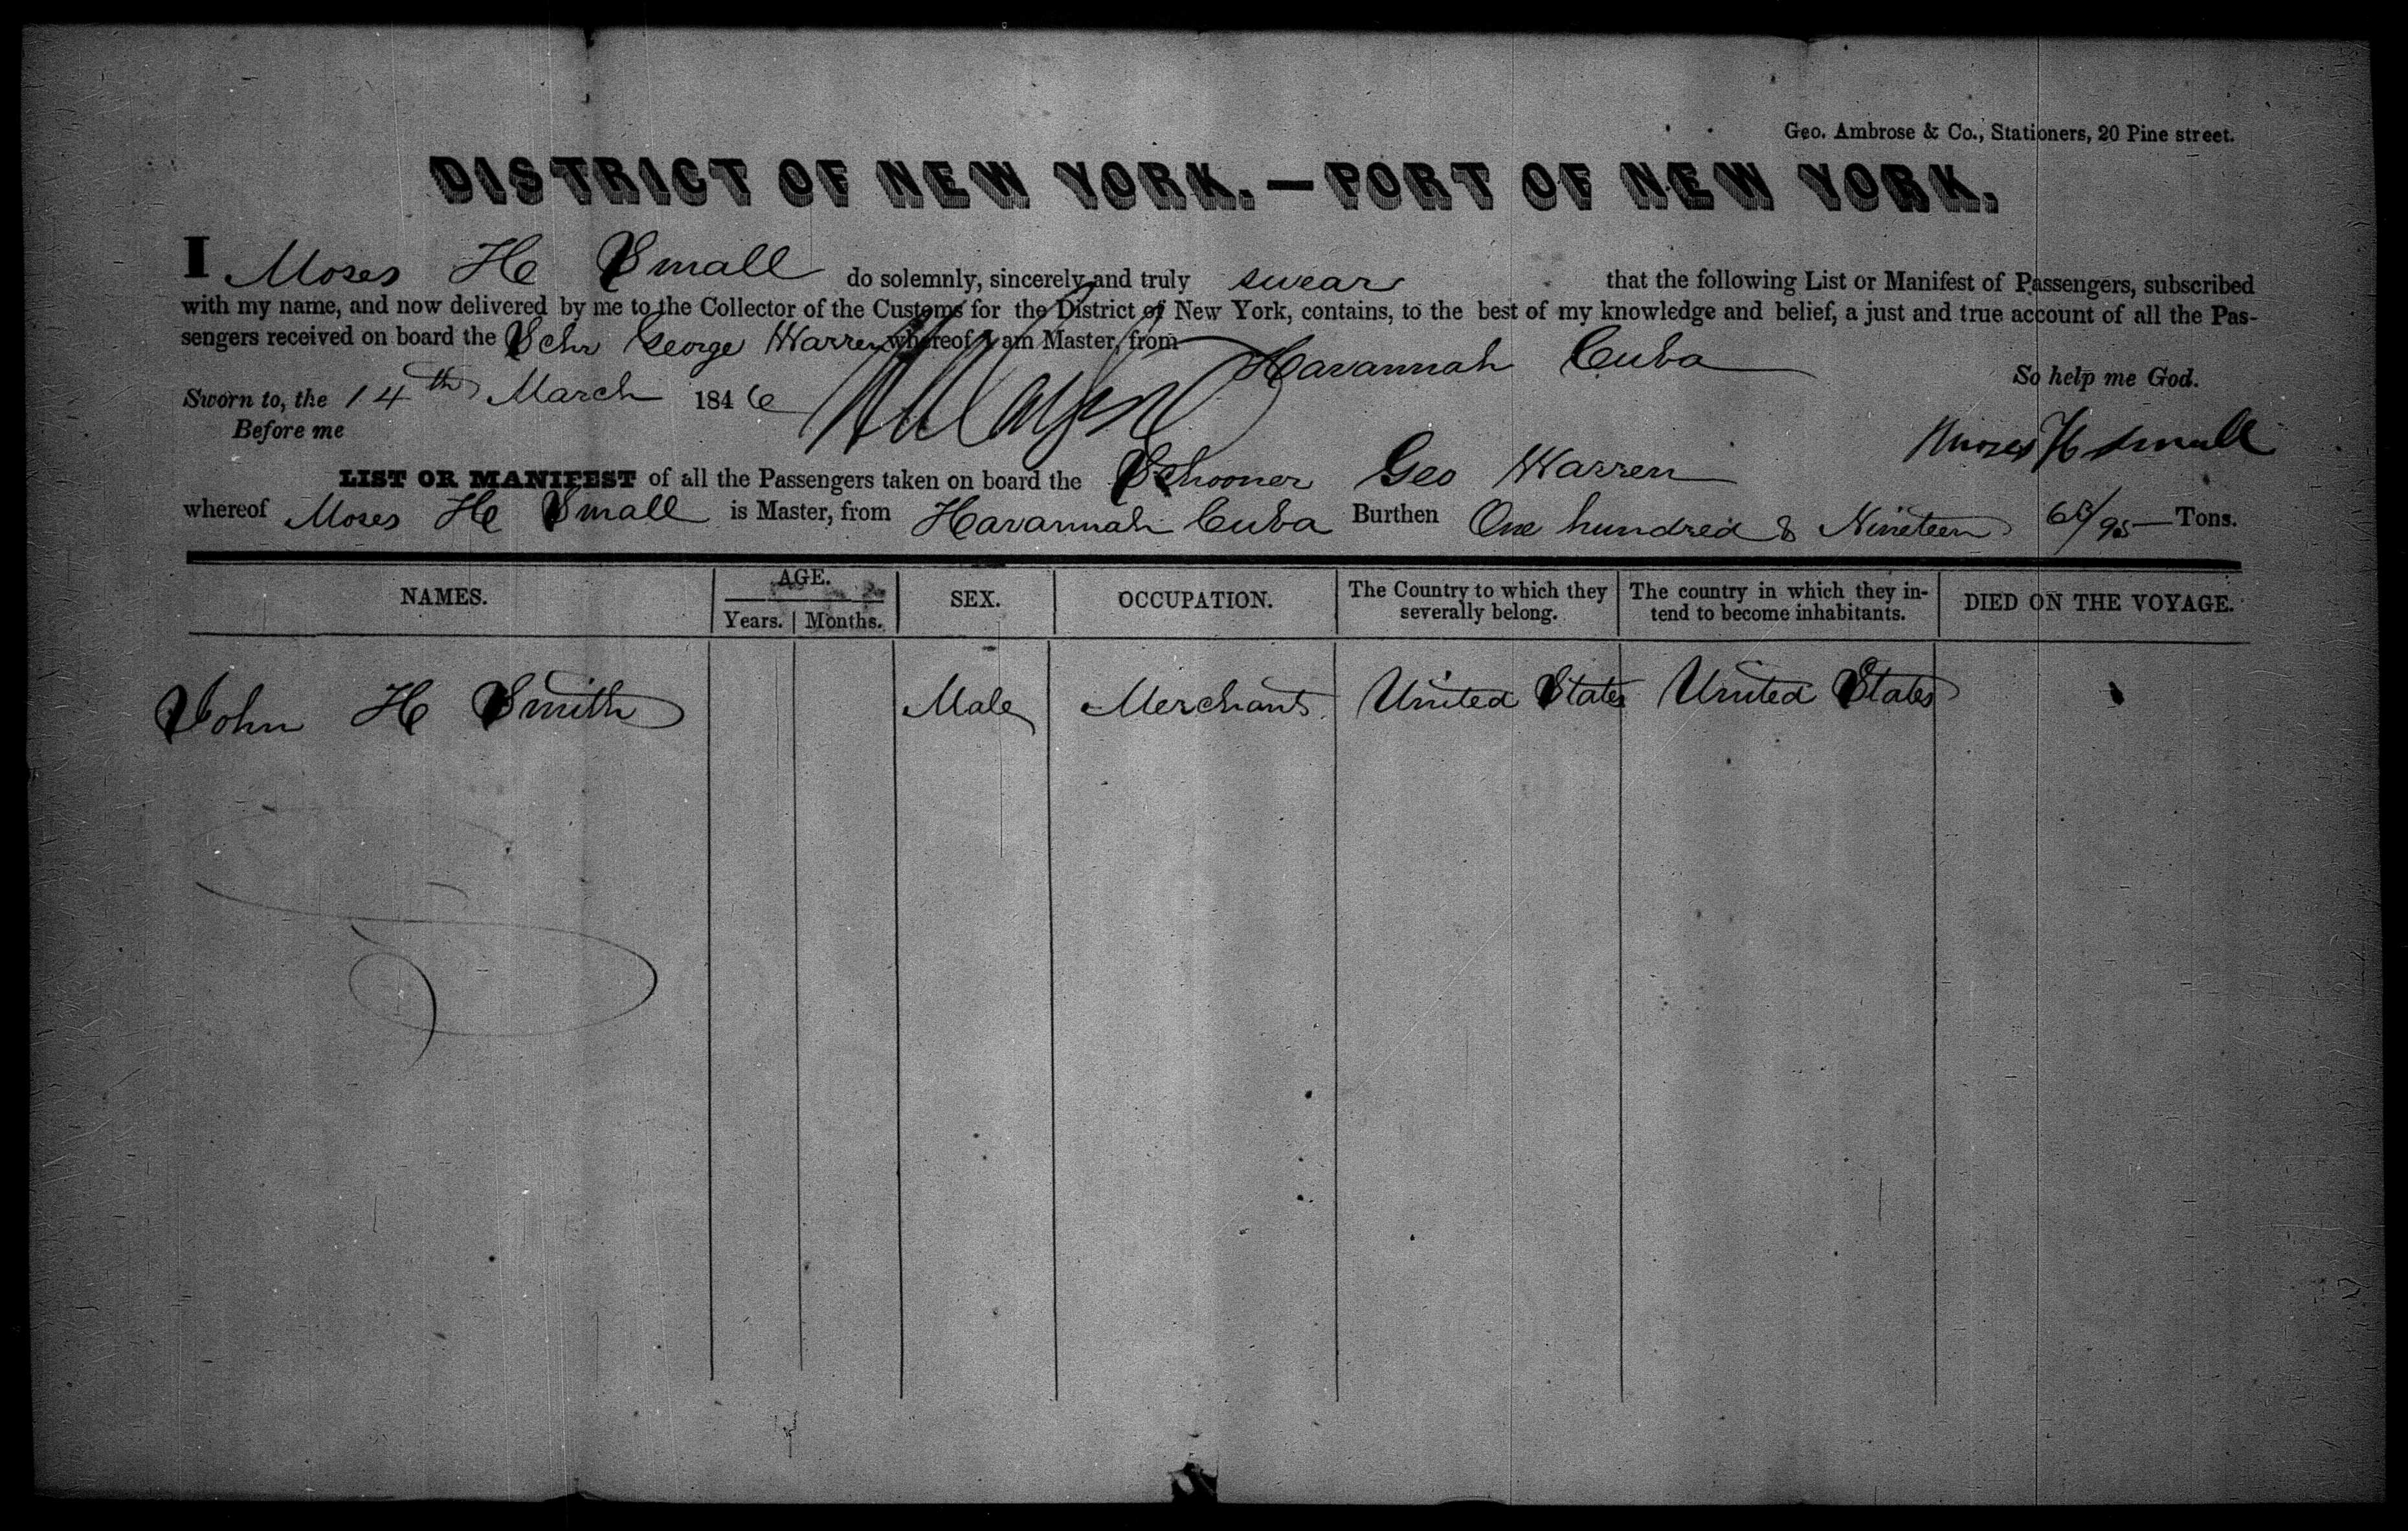 Geo. Ambrose & Co., Stationers, 20 Pine street.
DISTRICT OF NEW YORK.—PORT OF NEW YORK.
I Moses H Small do solemnly, sincerely and truly swear that the following List or Manifest of Passengers, subscribed
with my name, and now delivered by me to the Collector of the Customs for the District of New York, contains, to the best of my knowledge and belief, a just and true account of all the Pas-
sengers received on board the Schr George Warren whereof I am Master, from Havannah Cuba
So help me God.
Sworn to, the 14th March 1846
Before me
Moses H Small
LIST OR MANIFEST of all the Passengers taken on board the Schooner Geo Warren
whereof Moses H Small is Master, from Havannah Cuba Burthen One hundred & Nineteen /95 Tons.
NAMES. AGE. SEX. OCCUPATION. The Country to which they severally belong. The country in which they in- tend to become inhabitants. DIED ON THE VOYAGE.
Years. Months.
John H Smith Male Merchant United States United States